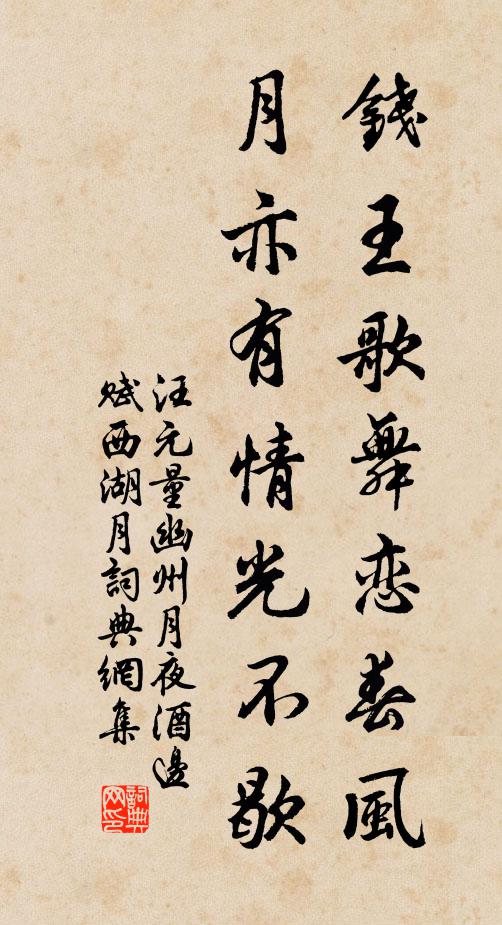 錢王歌舞恋春風
月亦有情光不歇
汪元量幽州月夜酒邊
賦西湖月詞典網集
詞典
网印